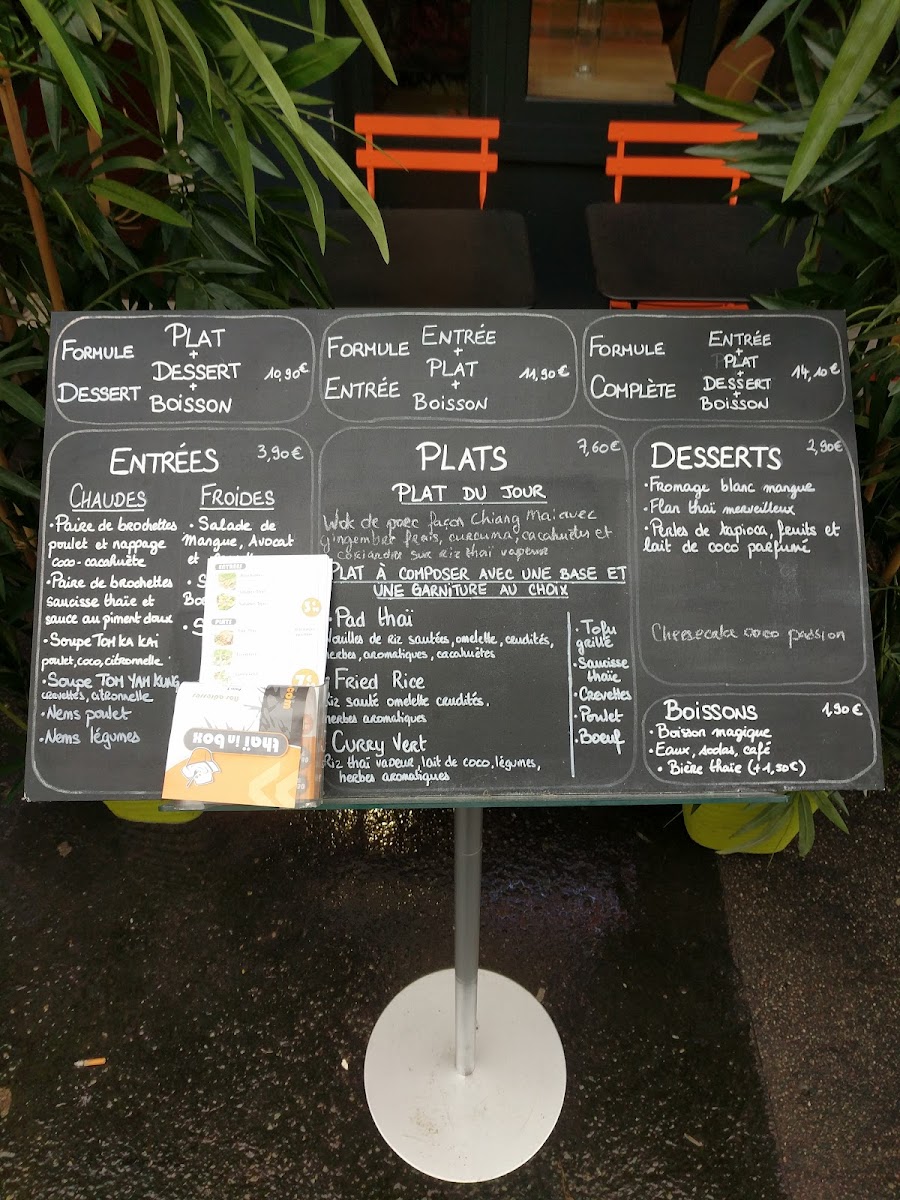 FORMULE
DESSERT
PLAT
+
DESSERT
+
BOISSON
10,90€
FORMULE
ENTRÉE
ENTRÉE
+
PLAT
+
BOISSON
11,90€
FORMULE
COMPLÈTE
ENTRÉE
+
PLAT
+
DESSERT
+
BOISSON
14,10€
ENTRÉES 3,90€
CHAUDES
• Paire de brochettes
poulet et nappage
coco-cacahuète
• Paire de brochettes
saucisse thaïe et
sauce au piment doux
• Soupe TOM KA KAI
poulet, coco, citronnelle
• Soupe TOM YAM KUNG
crevettes, citronnelle
• Nems poulet
• Nems légumes
FROIDES
• Salade de
Mangue, Avocat
et
PLATS 7,60€
PLAT DU JOUR
Wok de porc façon Chiang Mai avec
gingembre frais, curcuma, cacahuètes et
coriandre sur riz thaï vapeur
PLAT À COMPOSER AVEC UNE BASE ET
UNE GARNITURE AU CHOIX
Pad thaï
Nouilles de riz sautées, omelette, crudités,
herbes, aromatiques, cacahuètes
Fried Rice
Riz sauté omelette crudités,
herbes aromatiques
CURRY VERT
Riz thaï vapeur, lait de coco, légumes,
herbes aromatiques
• Tofu
grillé
• Saucisse
thaïe
• Crevettes
• Poulet
• Boeuf
DESSERTS 2,90€
• Fromage blanc mangue
• Flan thaï merveilleux
• Perles de tapioca, fruits et
lait de coco parfumé
Cheesecake coco passion
BOISSONS 1,90€
• Boisson magique
• Eaux, sodas, café
• Bière thaïe (+1,50€)
ENTRÉES
PLATS
thaï in box